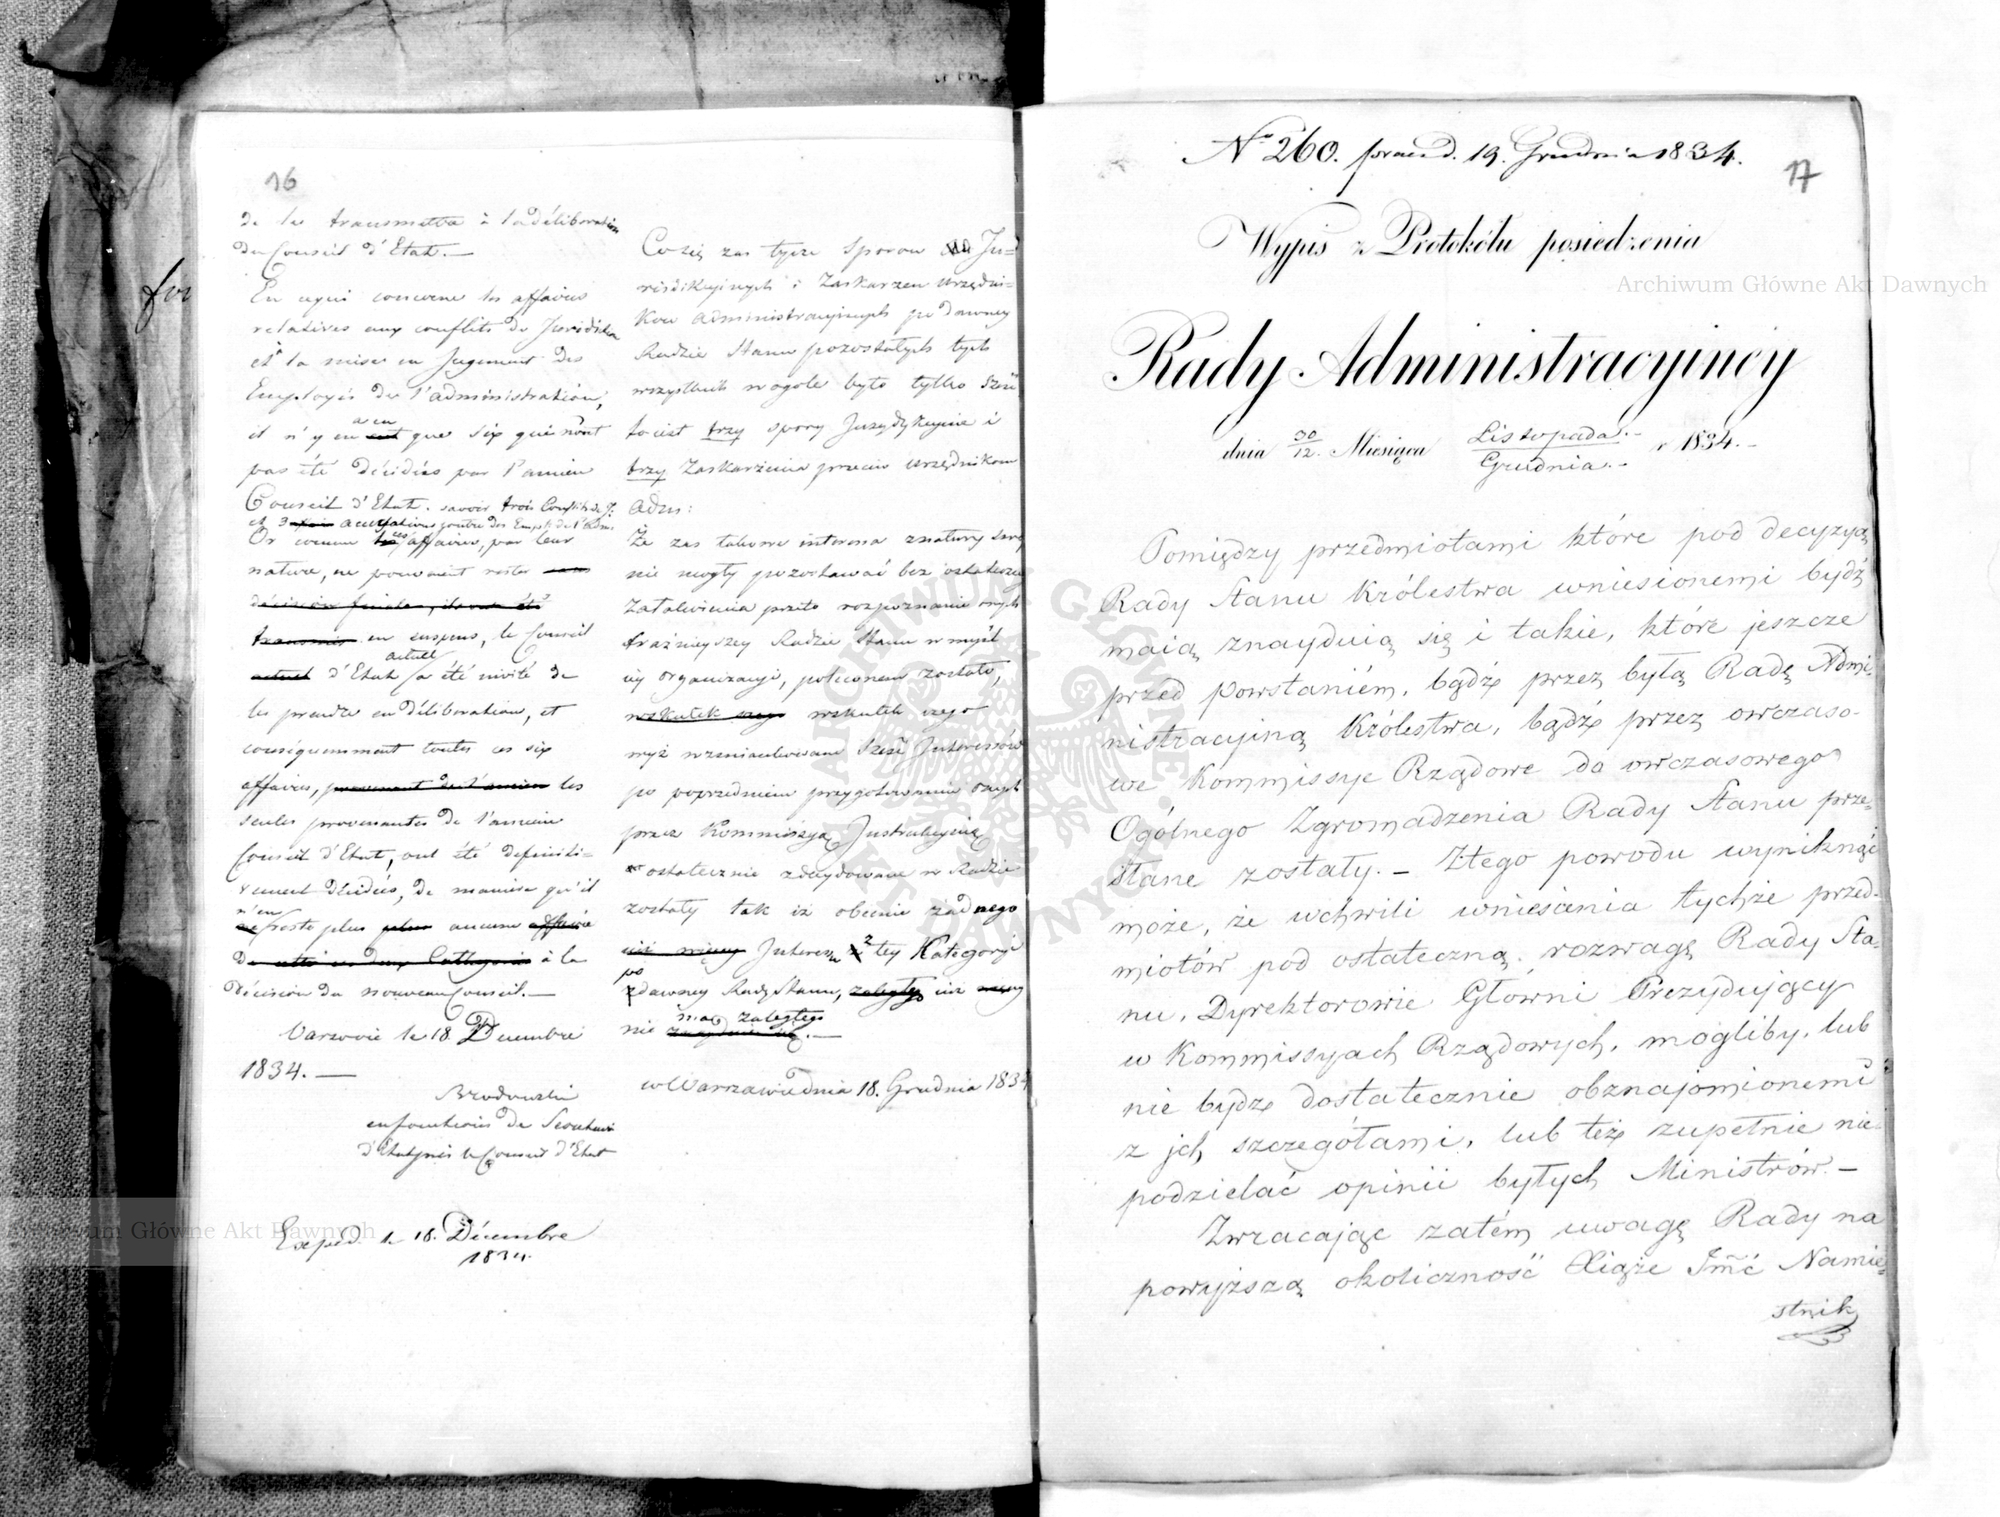 16
de les transmettre à la délibération
du Conseil d'Etat. —
En ce qui concerne les affaires
relatives aux conflits de Juridiction
et à la mise en Jugement des
Employés de l'administration,
il n'y en a eu que six qui n'ont
pas été décidées par l'ancien
Conseil d'Etat. savoir trois Conflits de J:
et 3 accusations contre des Empl: de l'Adm:
Or comme ces affaires, par leur
nature, ne pouvaient rester
décision finale,
en suspens, le Conseil
d'Etat actuel a été invité de
les prendre en délibération, et
conséquemment toutes ces six
affaires, les
seules provenantes de l'ancien
Conseil d'Etat, ont été définiti=
vement décidées, de manière qu'il
n'en reste plus aucune
à la
décision du nouveau Conseil. —
Varsovie le 18 Decembre
1834. —
Brodowski
en fonctions de Secretaire
d'Etat près le Conseil d'Etat
Exped. le 18. Décembre
1834.
Co się zas tycze Sporow Ju=
risdikcyinych i Zaskarzen urzędni=
kow administracyinych po dawney
Radzie Stanu pozostałych tych
wszystkich w ogole było tylko sześć
to iest trzy spory Juryzdykcyine i
trzy Zaskarżenia przeciw urzędnikom
adm:
Że zas takowe interesa z natury swey
nie mogły pozostawać bez ostateczn
załatwienia przeto rozpoznanie onych
teraźnieyszey Radzie Stanu w myśl
iey organizacyi, polecone zostało,
wskutek czego wskutek czego
wyż wzmiankowane sześć Interessów
po poprzedniem przygotowaniu onych
przez Kommissyą Instrukcyiną
ostatecznie zdecydowane w Radzie
zostały tak iż obecnie żadnego
iuż więcey Interessu z tey Kategoryi
po dawney Rady Stanu, zaległey iuż
nie ma zaległego
w Warszawie dnia 18. Grudnia 1834
No 260. praes d. 19. Grudnia 1834.
17
Wypis z Protokółu posiedzenia
Rady Administracyiney
dnia 30/12. Miesiąca Listopada/Grudnia r 1834. —
Pomiędzy przedmiotami które pod decyzyą
Rady Stanu Królestwa wniesionemi bydź
maią znayduią się i takie, które jeszcze
przed powstaniem, bądź przez byłą Radę Admi=
nistracyjną Królestwa, bądź przez owczaso-
we Kommissye Rządowe do owczasowego
Ogólnego Zgromadzenia Rady Stanu prze=
słane zostały. — Ztego powodu wyniknąć
może, że wchwili wniesienia tychże przed-
miotów pod ostateczną rozwagę Rady Sta=
nu, Dyrektorowie Główni Prezydujący
w Kommissyach Rządowych, mogliby, lub
nie bydź dostatecznie obznajomionemi
z jch szczegółami, lub też zupełnie nie
podzielać opinii byłych Ministrów. —
Zwracając zatem uwagę Rady na
powyższą okoliczność Xiąże Jmć Namie=
stnik
Archiwum Główne Akt Dawnych
Archiwum Główne Akt Dawnych
ARCHIWUM GŁÓWNE AKT DAWNYCH